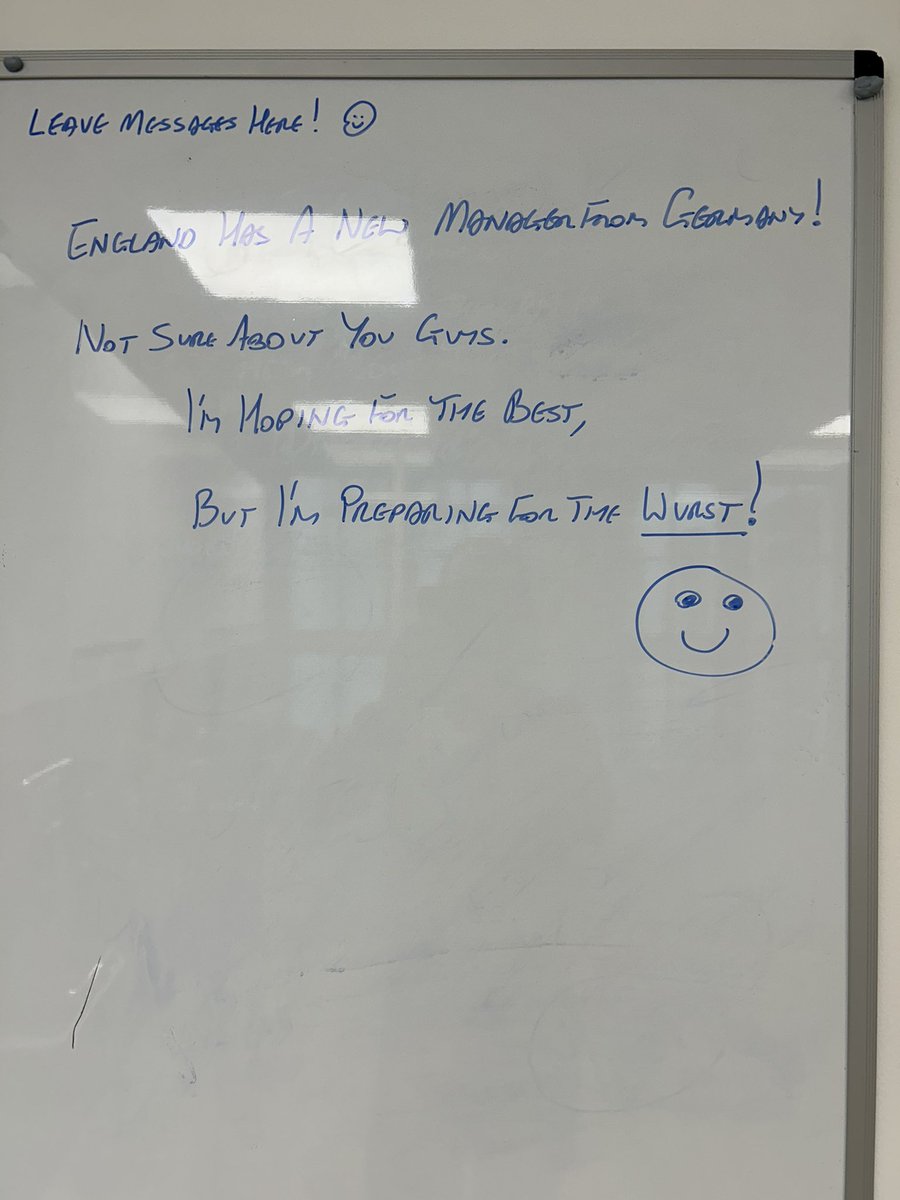 LEAVE MESSAGES HERE!
ENGLAND HAS A NEW MANAGER FROM GERMANY!
NOT SURE ABOUT YOU GUYS.
I'M HOPING FOR THE BEST,
BUT I'M PREPARING FOR THE WURST!